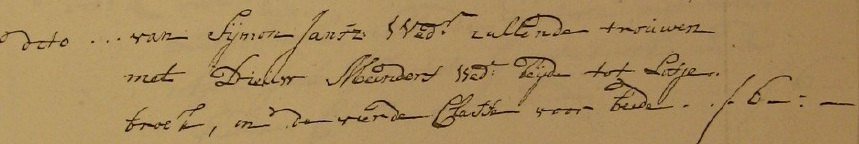 dito ... van Sijmon Jansz Wedr. zullende trouwen
met Dieuw Meinders Wed. beijde tot Lutje-
broek, in de vierde Classe voor beide . . f 6 - : -